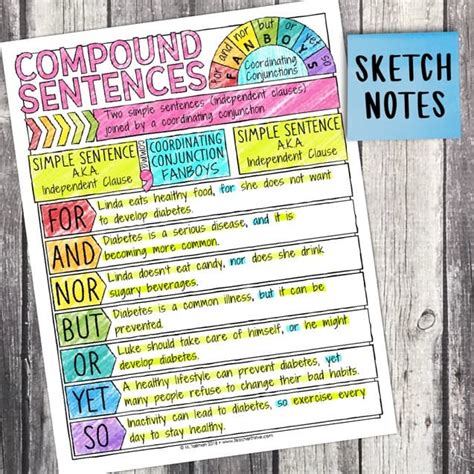 COMPOUND
SENTENCES
for and nor but or yet so
FANBOYS
Coordinating
Conjunctions
Two simple sentences (independent clauses)
joined by a coordinating conjunction
SIMPLE SENTENCE
A.K.A.
Independent Clause
COMMA
COORDINATING
CONJUNCTION
FANBOYS
SIMPLE SENTENCE
A.K.A.
Independent Clause
FOR
Linda eats healthy food, for she does not want
to develop diabetes.
AND
Diabetes is a serious disease, and it is
becoming more common.
NOR
Linda doesn't eat candy, nor does she drink
sugary beverages.
BUT
Diabetes is a common illness, but it can be
prevented.
OR
Luke should take care of himself, or he might
develop diabetes.
YET
A healthy lifestyle can prevent diabetes, yet
many people refuse to change their bad habits.
SO
Inactivity can lead to diabetes, so exercise every
day to stay healthy.
SKETCH
NOTES